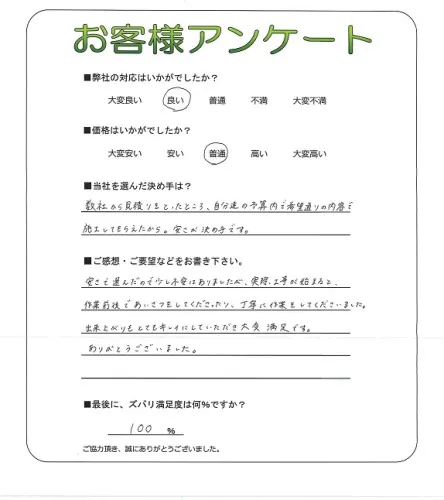 お客様アンケート
■弊社の対応はいかがでしたか？
大変良い 良い 普通 不満 大変不満
■価格はいかがでしたか？
大変安い 安い 普通 高い 大変高い
■当社を選んだ決め手は？
数社から見積りをとったところ、自分達の予算内で希望通りの内容で
施工してもらえたから。安さが決め手です。
■ご感想・ご要望などをお書き下さい。
安さで選んだので少し不安はありましたが、実際工事が始まると、
作業前後であいさつをしてくださったり、丁寧に作業をしてくださいました。
出来上がりもとてもキレイにしていただき大変 満足です。
ありがとうございました。
■最後に、ズバリ満足度は何%ですか？
100 %
ご協力頂き、誠にありがとうございました。